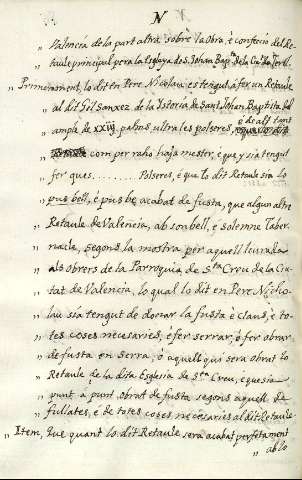 N
„ Valencia de la part altra sobre la Obra, è confecio del Re-
„ taule principal pera la Esglesya de S. Johan Bap.ta de la Ciu.t de Terol.
„ Primerament, lo dit en Pere Nicolau es tengut à fer un Retaule
„ al dit Gil Sanxez de la Ysteria de Sant Johan Baptista, tan
è de alt tant
„ ample de XXIIJ. palms ultra les polseres,
„ com per raho haja mester, è que y sia tengut
„ fer ques ........ Polseres, è que lo dit Retaule sia lo
„ pus bell, è pus be acabat de fusta, que algun altre
„ Retaule de Valencia, ab son bell, è solemne Taber-
„ nacle, segons la mostra per aquell liurada
„ als obrers de la Parroquia de S.ta Creu de la Ciu-
„ tat de Valencia, lo qual lo dit en Pere Nicho-
„ lau sia tengut de donar la fusta è claus, è to-
„ tes coses necesaries, è fer serrar, è fer obrar
„ de fusta en Serra, ò aquell qui serà obrat lo
„ Retaule de la dita Esglesia de S.ta Creu, e que sia
„ punt à punt obrat de fusta segons aquell de
„ fullates, è de totes coses necesaries al dit Retaule.
„ Item, Que quant lo dit Retaule serà acabat perfetament
„ ab lo